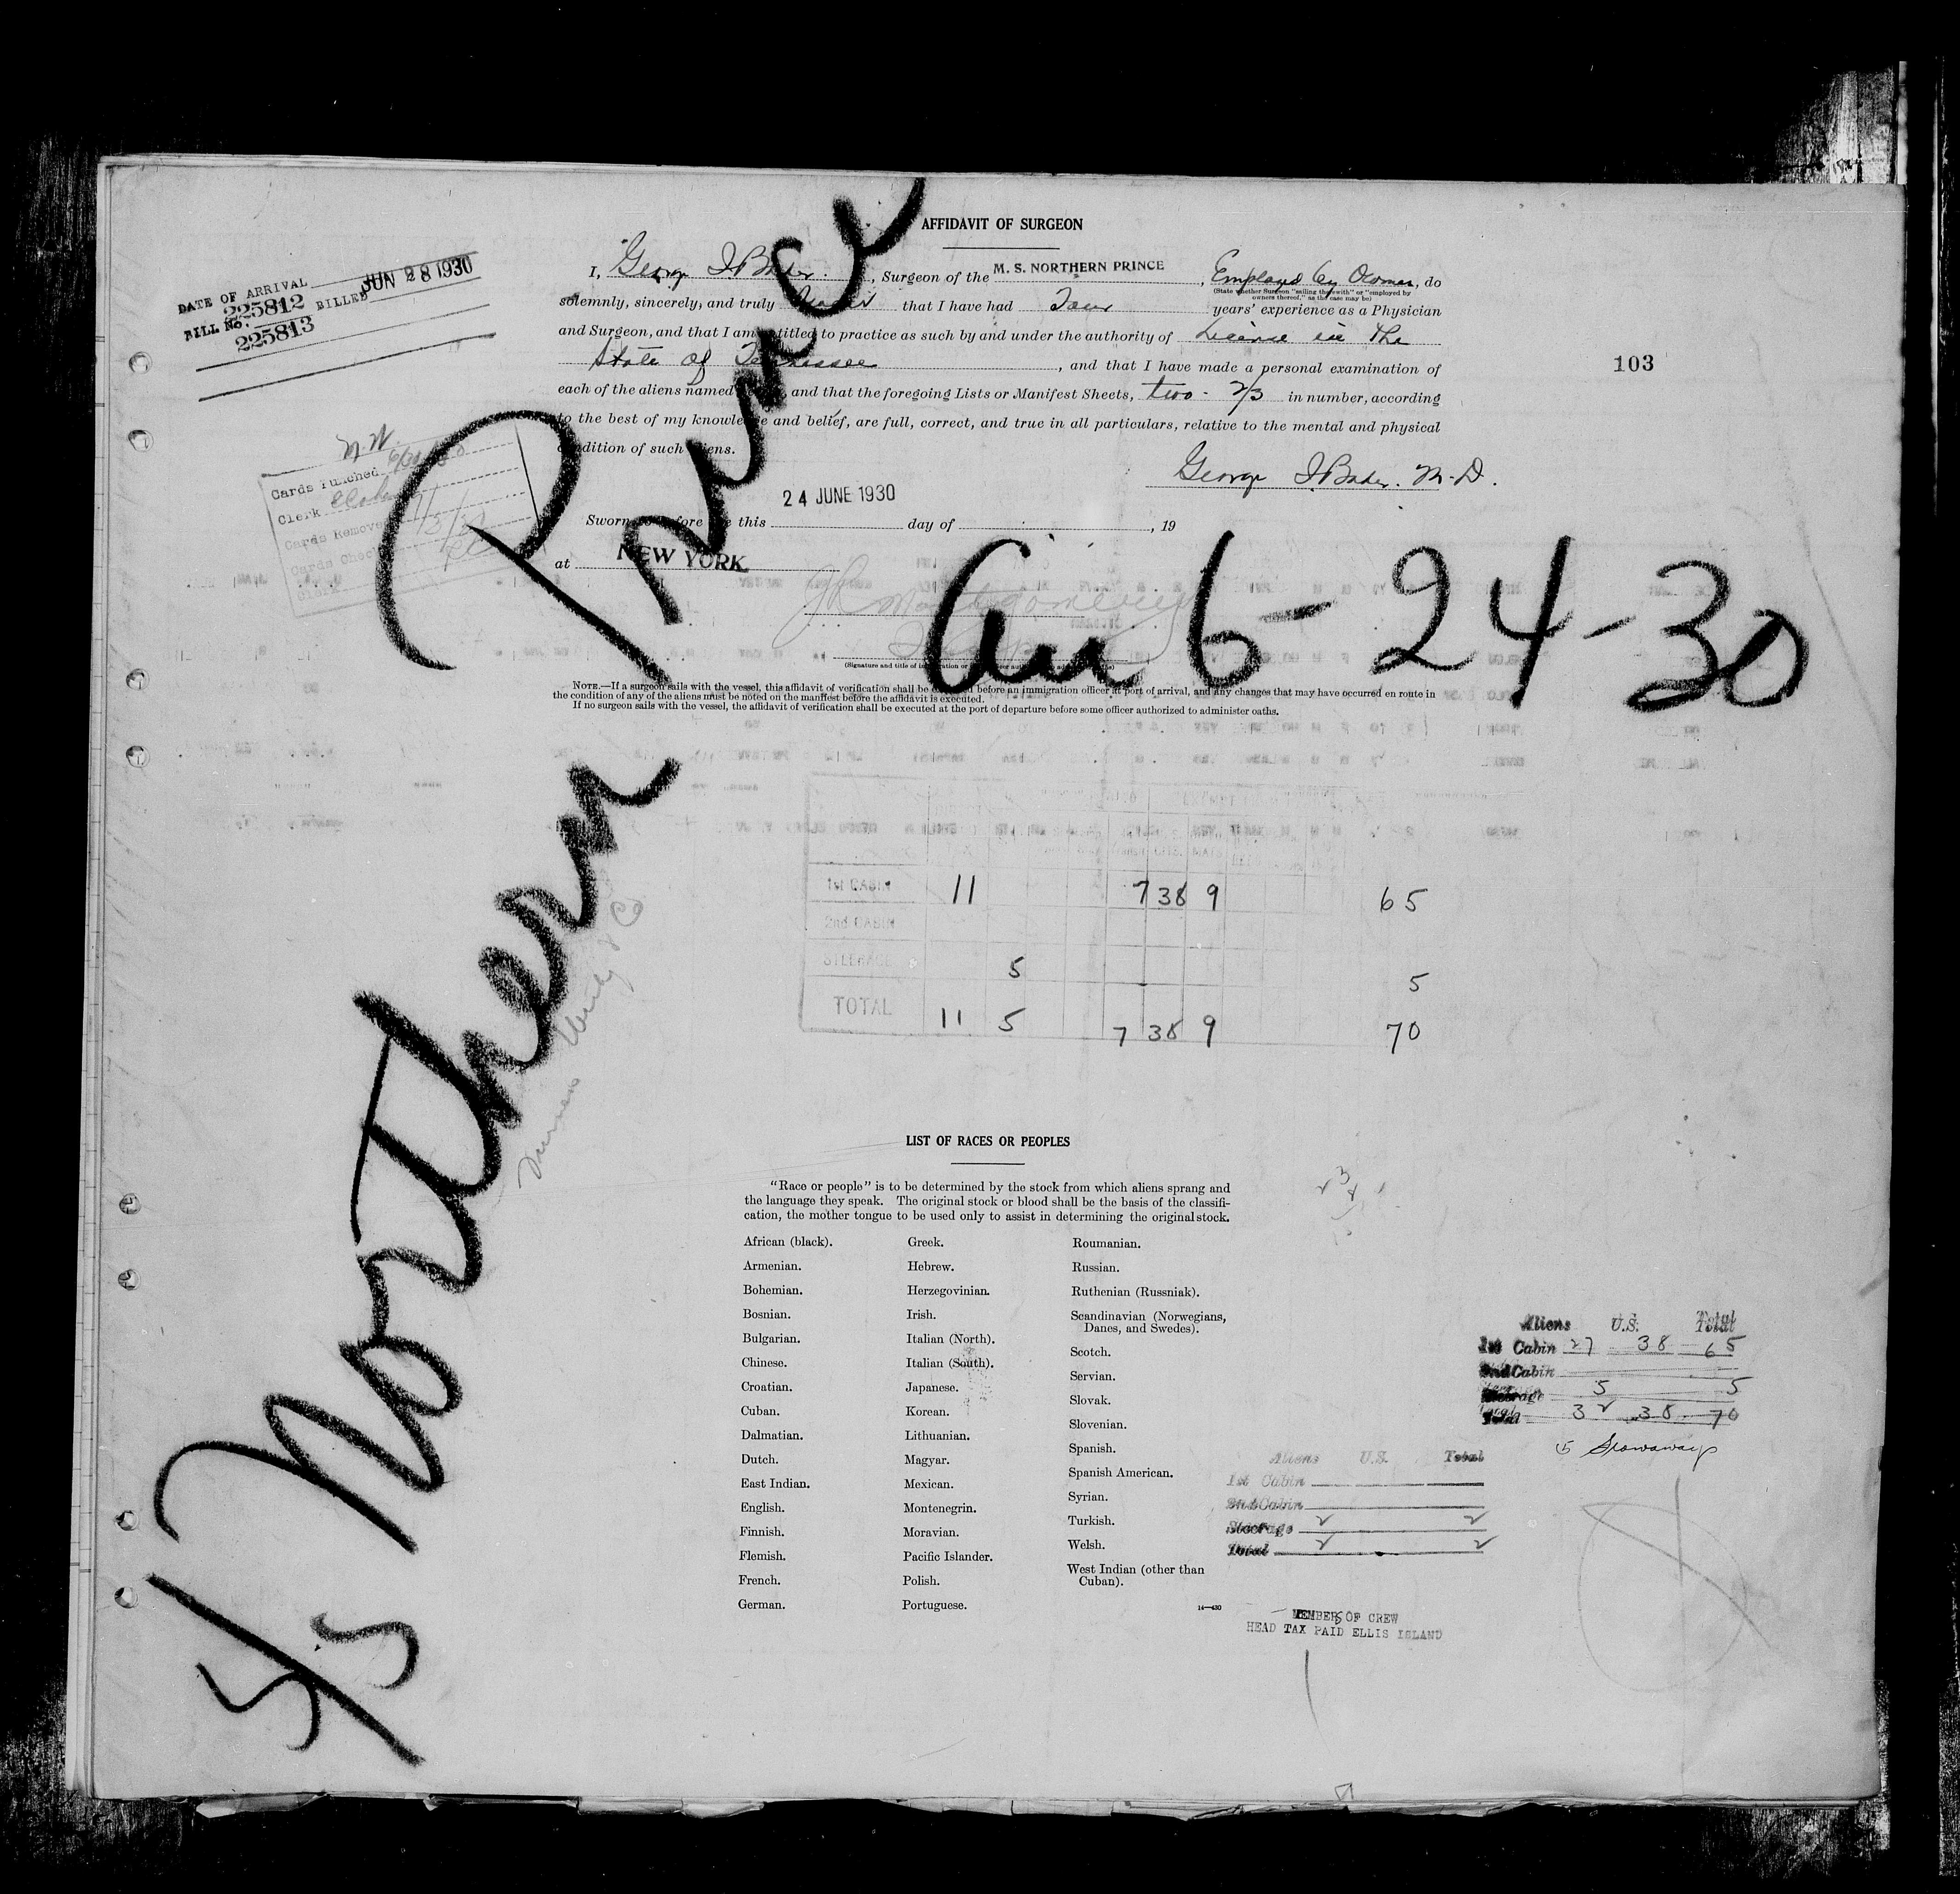 AFFIDAVIT OF SURGEON
I, George I. Bader, Surgeon of the M. S. NORTHERN PRINCE, Employed by Owner, do
(State whether Surgeon "sailing therewith" or "employed by
owners thereof," as the case may be)
solemnly, sincerely, and truly swear that I have had Four years' experience as a Physician
and Surgeon, and that I am entitled to practice as such by and under the authority of License in the
State of Tennessee, and that I have made a personal examination of
each of the aliens named herein, and that the foregoing Lists or Manifest Sheets, two - 2/3 in number, according
to the best of my knowledge and belief, are full, correct, and true in all particulars, relative to the mental and physical
condition of such aliens.
George I. Bader. M. D.
24 JUNE 1930
Sworn to before me this day of , 19
at NEW YORK
(Signature and title of immigration or
NOTE.—If a surgeon sails with the vessel, this affidavit of verification shall be executed before an immigration officer at port of arrival, and any changes that may have occurred en route in
the condition of any of the aliens must be noted on the manifest before the affidavit is executed.
If no surgeon sails with the vessel, the affidavit of verification shall be executed at the port of departure before some officer authorized to administer oaths.
DATE OF ARRIVAL
225812 BILLED JUN 28 1930
BILL No.
225813
103
Cards Punched
Clerk
Cards Removed
Cards Checked
Clerk
S/S Northern Prince
Arr 6-24-30
1st CABIN 11 7 38 9 65
2nd CABIN
STEERAGE 5 5
TOTAL 11 5 7 38 9 70
LIST OF RACES OR PEOPLES
"Race or people" is to be determined by the stock from which aliens sprang and
the language they speak. The original stock or blood shall be the basis of the classifi-
cation, the mother tongue to be used only to assist in determining the original stock.
African (black). Greek. Roumanian.
Armenian. Hebrew. Russian.
Bohemian. Herzegovinian. Ruthenian (Russniak).
Bosnian. Irish. Scandinavian (Norwegians,
Danes, and Swedes).
Bulgarian. Italian (North).
Chinese. Italian (South). Scotch.
Croatian. Japanese. Servian.
Cuban. Korean. Slovak.
Dalmatian. Lithuanian. Slovenian.
Dutch. Magyar. Spanish.
East Indian. Mexican. Spanish American.
English. Montenegrin. Syrian.
Finnish. Moravian. Turkish.
Flemish. Pacific Islander. Welsh.
French. Polish. West Indian (other than
Cuban).
German. Portuguese.
14—430
Aliens U.S. Total
1st Cabin 27 38 65
2nd Cabin
Steerage 5 5
Total 32 38 70
5 Stowaways
Aliens U.S. Total
1st Cabin
2nd Cabin
Steerage 2 2
Total 2 2
MEMBERS OF CREW
HEAD TAX PAID ELLIS ISLAND